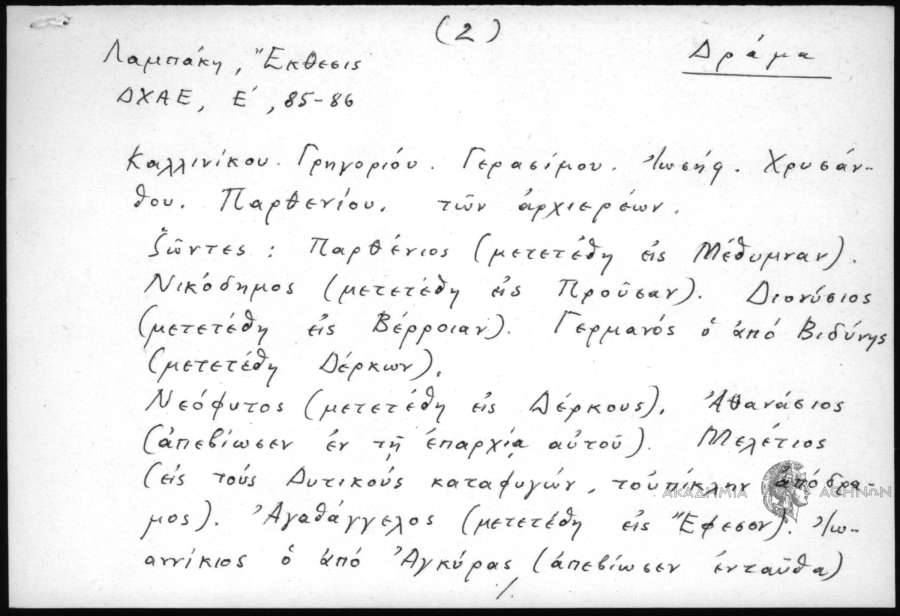 (2)
Λαμπάκη, Ἔκθεσις
Δράμα
ΔΧΑΕ, Ε΄, 85-86
Καλλινίκου. Γρηγορίου. Γερασίμου. Ἰωσήφ. Χρυσάν-
θου. Παρθενίου. τῶν ἀρχιερέων.
ζῶντες : Παρθένιος (μετετέθη εἰς Μέθυμναν).
Νικόδημος (μετετέθη εἰς Προῦσαν). Διονύσιος
(μετετέθη εἰς Βέρροιαν). Γερμανός ὁ ἀπό Βιδύνης
(μετετέθη Δέρκων).
Νεόφυτος (μετετέθη εἰς Δέρκους). Ἀθανάσιος
(ἀπεβίωσεν ἐν τῇ ἐπαρχίᾳ αὐτοῦ). Μελέτιος
(εἰς τούς Δυτικούς καταφυγών, τοὐπίκλην ἀπόδρα-
ΑΚΑΔΗΜΙΑ ΑΘΗΝΩΝ
μος). Ἀγαθάγγελος (μετετέθη εἰς Ἔφεσον). Ἰω-
αννίκιος ὁ ἀπό Ἀγκύρας (ἀπεβίωσεν ἐνταῦθα)
./.